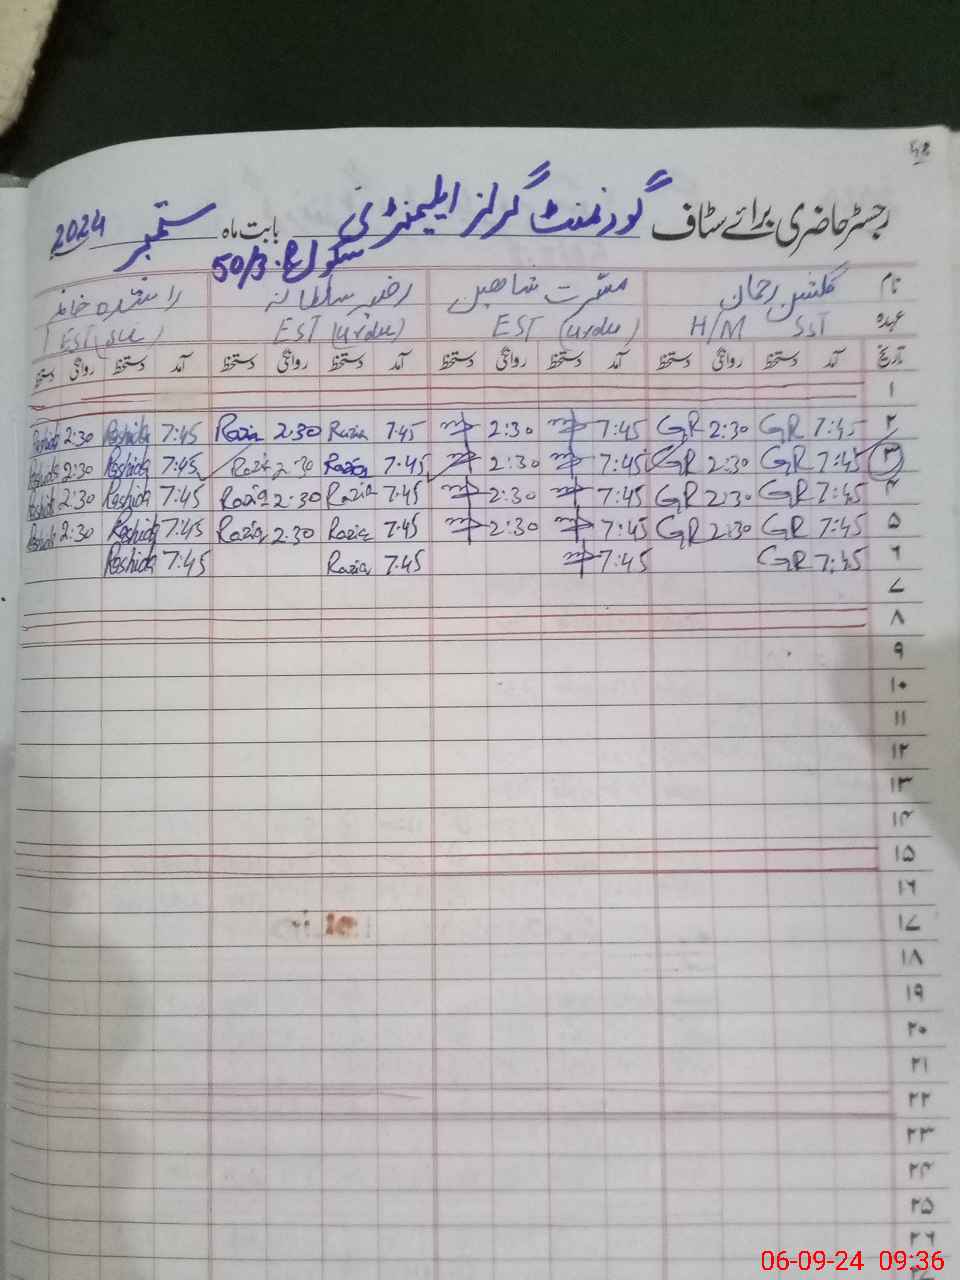 رجسٹر حاضری برائے سٹاف گورنمنٹ گرلز ایلیمنٹری بابت ماہ ستمبر 2024
سکول 50/3
نام گلشن رحمان مسرت شاہین رضیہ سلطانہ راشدہ خانم
عہدہ SST H/M EST (urdu) EST (urdu) EST
تاریخ آمد دستخط روانگی دستخط آمد دستخط روانگی دستخط آمد دستخط روانگی دستخط آمد دستخط روانگی دستخط
۱
۲ 7:45 GR 2:30 GR 7:45 2:30 7:45 Razia 2:30 Razia 7:45 Rashida 2:30 Rashida
۳ 7:45 GR 2:30 GR 7:45 2:30 7:45 Razia 2:30 Razia 7:45 Rashida 2:30 Rashida
۴ 7:45 GR 2:30 GR 7:45 2:30 7:45 Razia 2:30 Razia 7:45 Rashida 2:30 Rashida
۵ 7:45 GR 2:30 GR 7:45 2:30 7:45 Razia 2:30 Razia 7:45 Rashida 2:30 Rashida
۶ 7:45 GR 7:45 7:45 Razia 7:45 Rashida
۷
۸
۹
۱۰
۱۱
۱۲
۱۳
۱۴
۱۵
۱۶
۱۷
۱۸
۱۹
۲۰
۲۱
۲۲
۲۳
۲۴
۲۵
۲۶
06-09-24 09:36